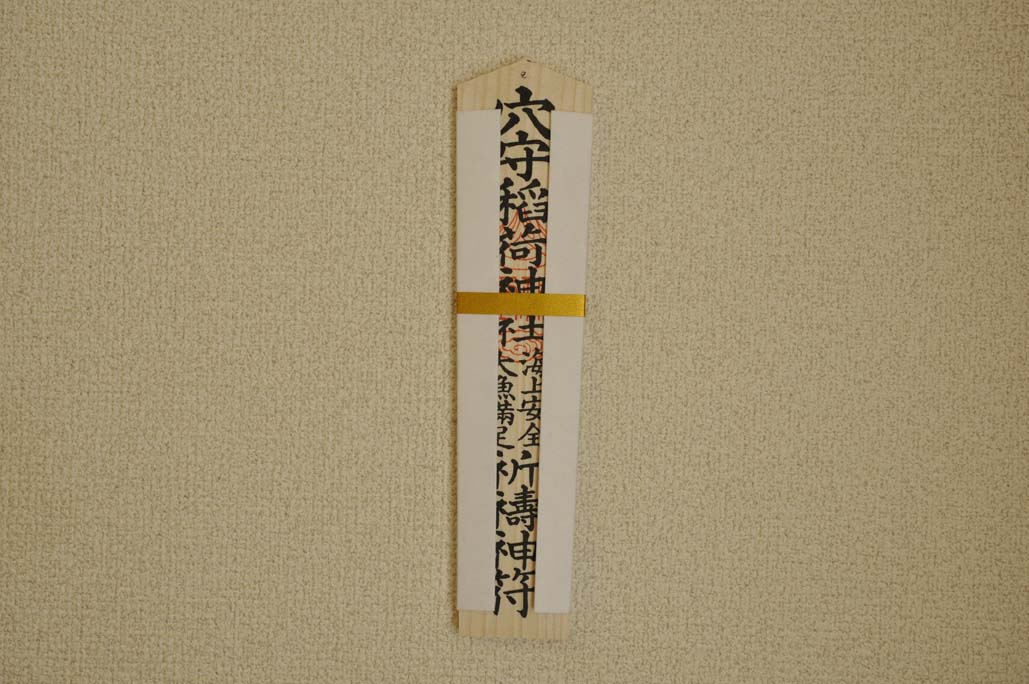 穴守稲荷神社
海上安全
大漁満足
祈禱神符